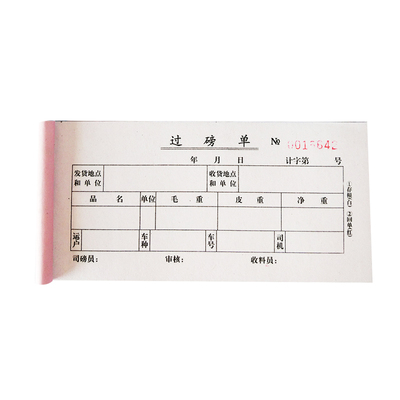 过磅单 № 0018642
年 月 日 计字第 号
发货地点和单位 收货地点和单位
品名 单位 毛重 皮重 净重
运户 车种 车号 司机
司磅员： 审核： 收料员：
①存根(白) ②回单(红)